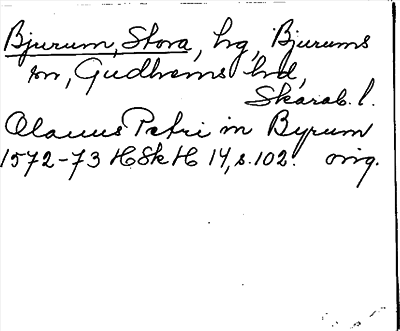 Bjurum, Stora, hg, Bjurums
sn, Gudhems hd,
Skarab. l.
Olauus Petri in Byrum
1572-73 HSkH 14, s. 102. orig.